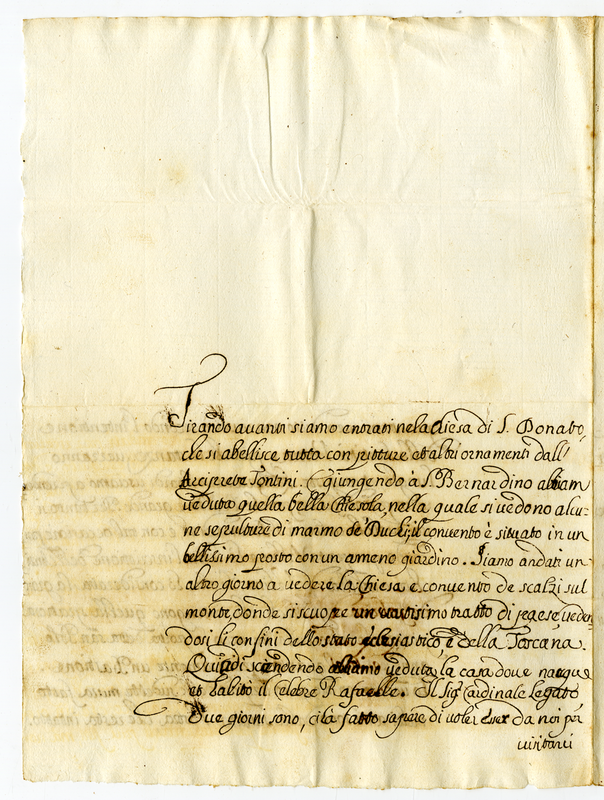 Tirando avanti siamo entrati nela chiesa di S. Donato,
che si abellisce tutta con pitture et altri ornamenti dall'
Arciprete Tontini. E giungendo à S. Bernardino abbiam
veduto quella bella Chiesola, nella quale si vedono alcu-
ne sepulture di marmo de Duchi; il convento è situato in un
bellissimo posto con un ameno giardino. Siamo andati un
altro giorno a vedere la Chiesa e convento de scalzi sul
monte donde si scuopre un vastisimo tratto di paese veden-
dosi li confini dello stato eclesiastico, e della Toscana.
Quindi scendendo abbiamo veduta la casa dove nacque
et habitò il celebre Rafaelle. Il Sig.r Cardinale Legato
Due giorni sono, ci hà fatto sapere di voler esser da noi per
visitarci